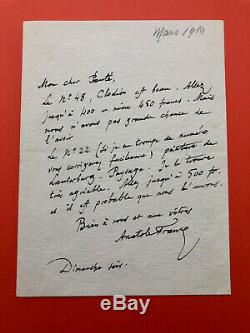 Mars 1914
Mon cher
Le N° 48, Clodion est beau. Allez
jusqu'à 400 et même 450 francs. Mais
nous n'avons pas grande chance de
l'avoir.
Le N° 22 (si je me trompe de numéro
vous corrigerez facilement) peinture de
Lauterburg - Paysage. Je le trouve
très agréable. Allez jusqu'à 500 fr.
et il est probable que nous l'aurons.
Bien à vous et aux vôtres
Anatole France
Dimanche soir.